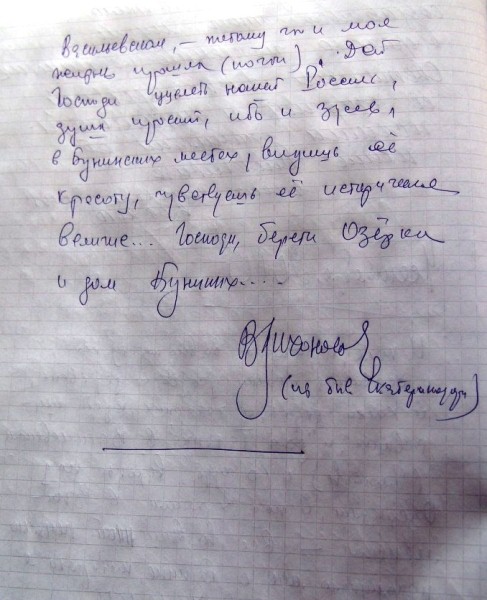 Васильевском, – потому что и моя
жизнь прошла (почти). Дай
Господи уцелеть нашей России,
душа просит, ибо и здесь,
в Бунинских местах, видишь её
красоту, чувствуешь её историческое
величие... Господи, береги Озёрки
и дом Буниных....
В Лихоносов
(из быв Екатеринодара)